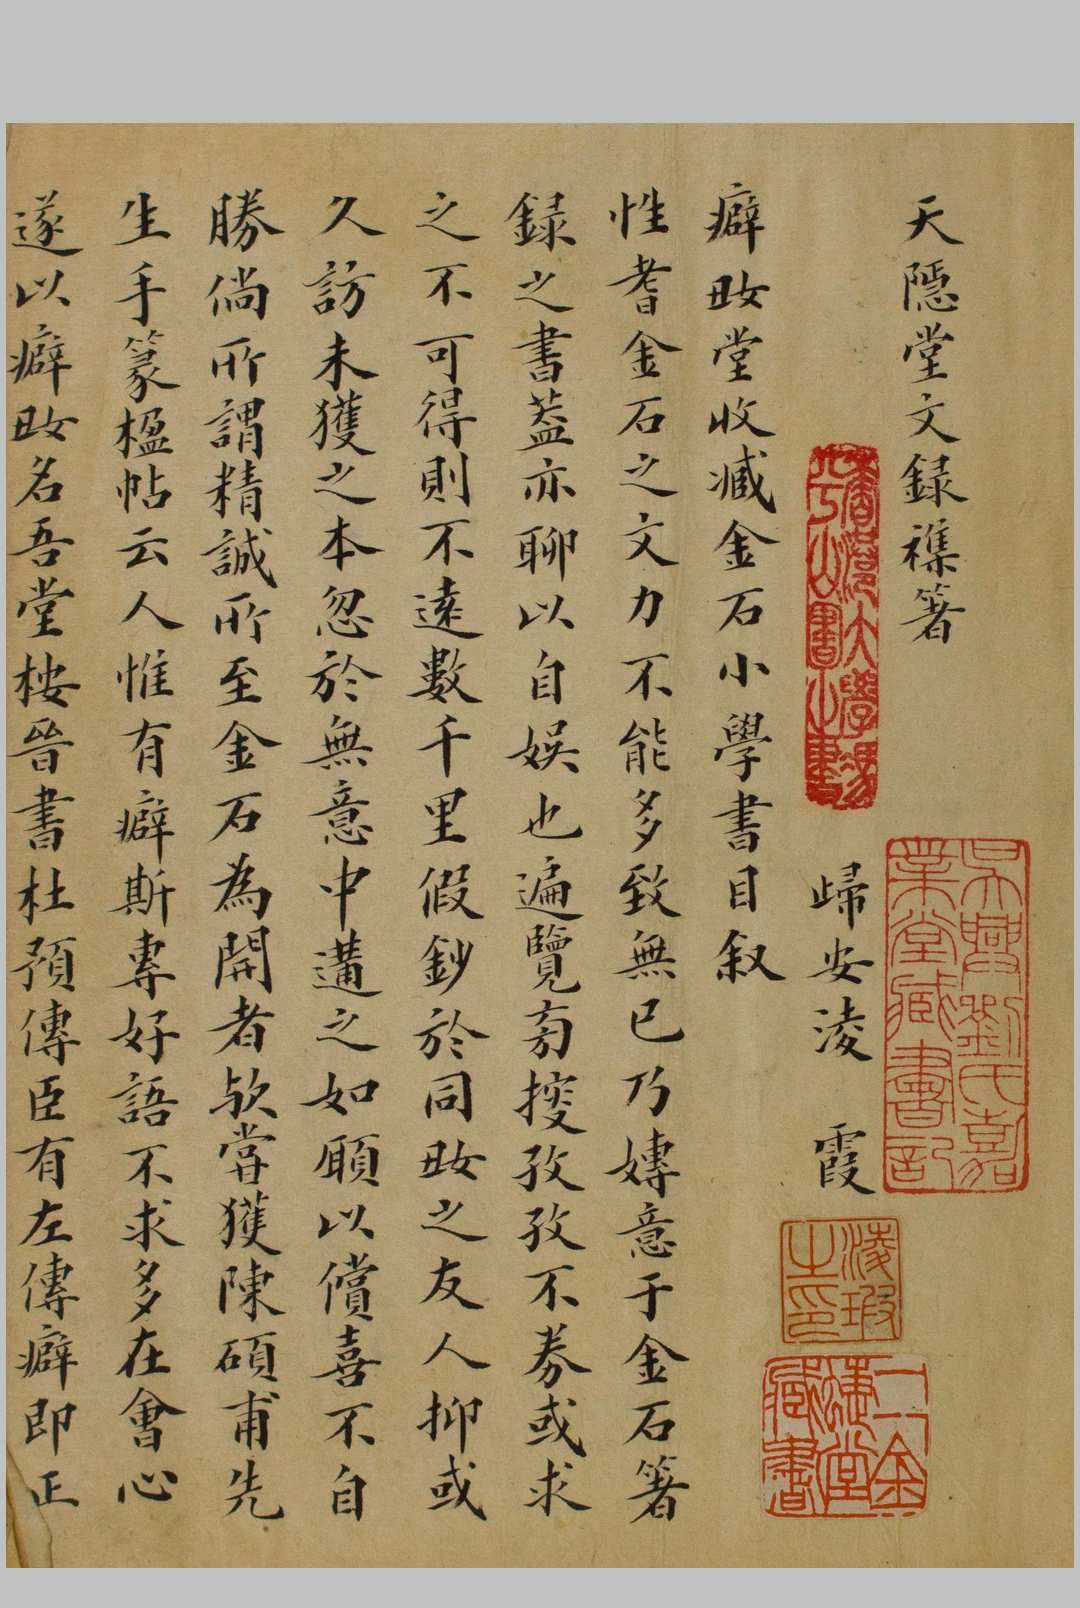 天隱堂文録襍箸
歸安淩霞
癖㚼堂收臧金石小學書目叙
性耆金石之文力不能多致無已乃嫥意于金石箸
録之書葢亦聊以自娛也遍覽䓬搜孜孜不劵或求
之不可得則不遠數千里假鈔於同㚼之友人抑或
久訪未獲之本忽於無意中遘之如願以償喜不自
勝倘所謂精誠所至金石為開者歟嘗獲陳碩甫先
生手篆楹帖云人惟有癖斯專好語不求多在會心
遂以癖㚼名吾堂桉晉書杜預傳臣有左傳癖即正
吳興劉氏嘉
業堂臧書記
淩瑕
之印